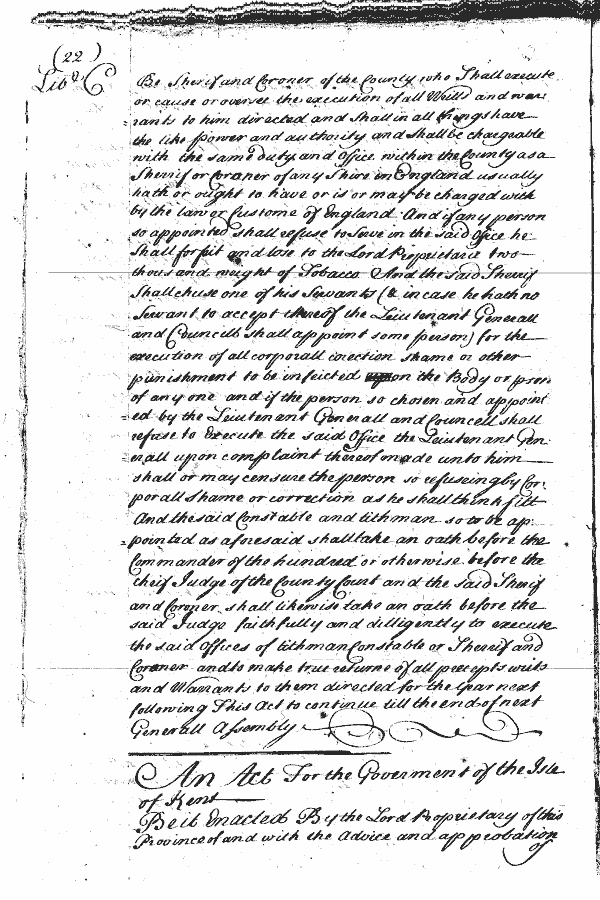 (22)
Lib.r C
Be Sherif and Coroner of the County who Shall execute
or cause or oversee the execution of all Writts and war-
rants to him directed and shall in all things have
the like power and authority and shall be chargeable
with the same duty and Office within the County as a
Sherrif or Coroner of any Shire in England usually
hath or ought to have or is or may be charged with
by the law or Custome of England And if any person
so appointed shall refuse to Serve in the said Ofice he
Shall forfeit and lose to the Lord Proprietarie two-
thousand weight of Tobacco And the said Sherrif
Shall chuse one of his Servants (& in case he hath no
Servant to accept thereof the Lieutenant Generall
and Councill shall appoint some person) for the
execution of all corporall correction shame or other
punishment to be inflicted upon the Body or pson
of any one and if the person so chosen and appoint
ed by the Lieutenant Generall and Councell shall
refuse to Execute the said Ofice the Lieutenant Gen-
erall upon complaint thereof made unto him
shall or may censure the person so refuseing by Cor-
porall shame or correction as he shall think fitt
And the said Constable and tithman so to be ap-
pointed as aforesaid shall take an oath before the
Commander of the hundred or otherwise before the
cheif Judge of the County Court and the said Sherif
and Coroner shall likewise take an oath before the
said Judge faithfully and dilligently to execute
the said offices of tithman Constable or Sherrif and
Coroner and to make true returne of all precepts writs
and Warrants to them directed for the Year next
following This Act to continue till the end of next
Generall Assembly
An Act For the Goverment of the Isle
of Kent
Be it Enacted By the Lord Proprietary of this
Province of and with the Advice and approbation
of